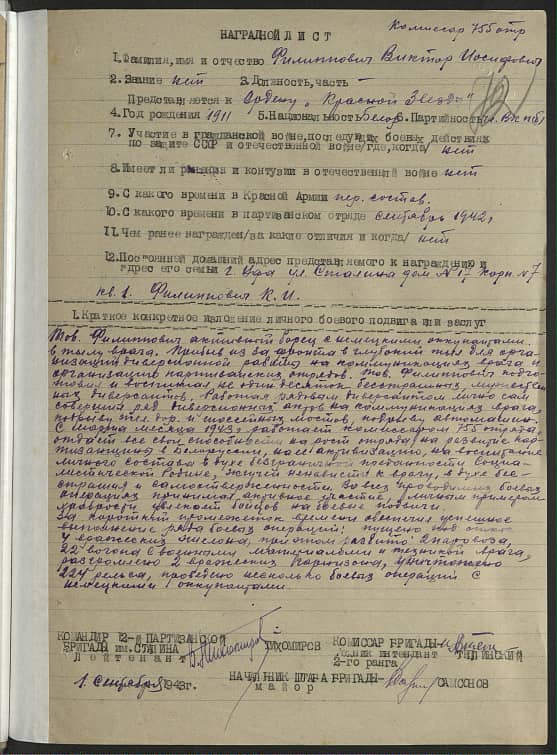 Комиссар 755 отр
НАГРАДНОЙ ЛИСТ
1.Фамилия,имя и отчество Филиппович Виктор Иосифович
2.Звание нет 3.Должность,часть -
Представляется к Ордену „Красной Звезды"
4.Год рождения 1911 5.Национальность белор. 6.Партийность
7. Участие в гражданской войне,последующих боевых действиях
по защите СССР и отечественной войне/где,когда/ нет
8.Имеет ли ранения и контузии в отечественной войне нет
9.С какого времени в Красной Армии пер. состав.
10.С какого времени в партизанском отряде сентябрь 1942г
11.Чем ранее награжден/за какие отличия и когда/ нет
12.Постоянный домашний адрес представляемого к награждению и
адрес его семьи г. Уфа ул Сталина дом №17 корп. №7
кв. 1. Филиппович К. И.
1.Краткое конкретное изложение личного боевого подвига или заслуг
Тов. Филиппович активный борец с немецкими оккупантами
в тылу врага. Прибыв из за фронта в глубокий тыл для орга-
низации диверсионной работы на коммуникациях врага и
организации партизанских отрядов. Тов. Филиппович подго-
товил и воспитал не один десяток бесстрашных, мужествен-
ных диверсантов. Работая рядовым диверсантом лично сам
совершил ряд диверсионных актов на коммуникациях врага,
подрыву жел. дор. и шоссейных мостов, подрыв автомашин.
С марта месяца 1943г. работает комиссаром 755 отряда,
отдает все свои способности на рост отряда, на развитие пар-
тизанщины в Белоруссии, на её активизацию, на воспитание
личного состава в духе безграничной преданности Социа-
листической Родине, жгучей ненависти к врагу, в духе бес-
страшия и самоотверженности. Во всех проводимых боевых
операциях принимал активное участие, личным примером
храбрости увлекает бойцов на боевые подвиги.
За короткий промежуток времени обеспечил успешное
выполнение ряда боевых операций: пущено под откос
4 вражеских эшелона, при этом разбито: 2 паровоза,
22 вагона с военными материалами и техникой врага,
разгромлено 2 вражеских гарнизона, уничтожено
224 рельса, проведено несколько боевых операций с
немецкими оккупантами.
КОМАНДИР 12-й ПАРТИЗАНСКОЙ
БРИГАДЫ им.СТАЛИНА ТИХОМИРОВ
Лейтенант
КОМИССАР БРИГАДЫ-
техник интендант ТЕПЛИНСКИЙ
2-го ранга
НАЧАЛЬНИК ШТАБА БРИГАДЫ- САМСОНОВ
майор
1 Сентября 1943г.